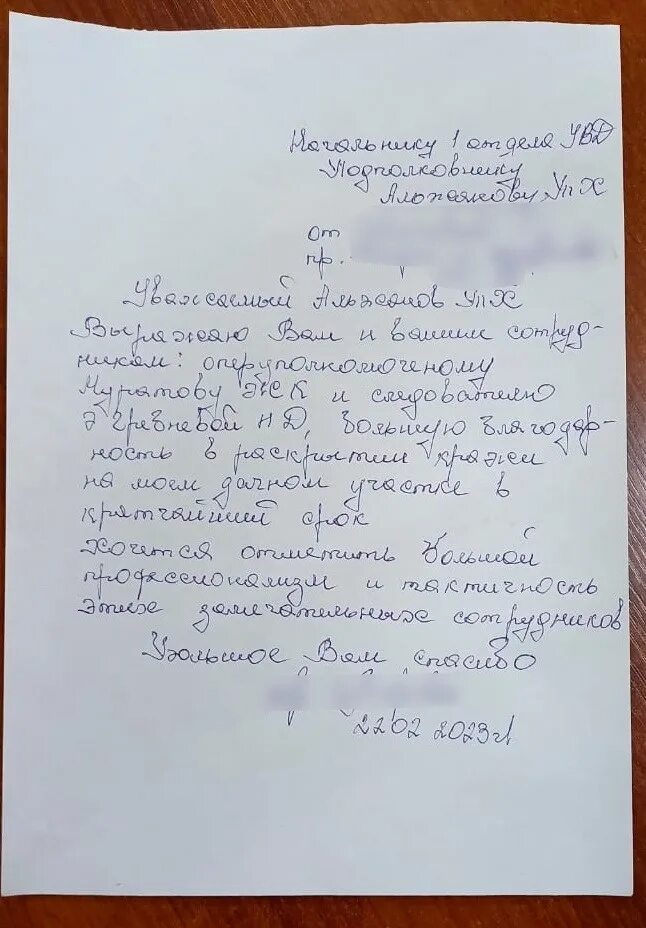 Начальнику 1 отдела УВД
Подполковнику
УпХ
от
пр.
Уважаемый Альжанов УпХ
Выражаю Вам и вашим сотруд-
никам: оперуполномоченому
Муратову ЭЖСК и следователю
Гревневой НД, большую благодар-
ность в раскрытии кражи
на моем дачном участке в
крятчайший срок
хочется отметить большой
профессионализм и тактичность
этих замечательных сотрудников
Вам спасибо
22 02 2023г